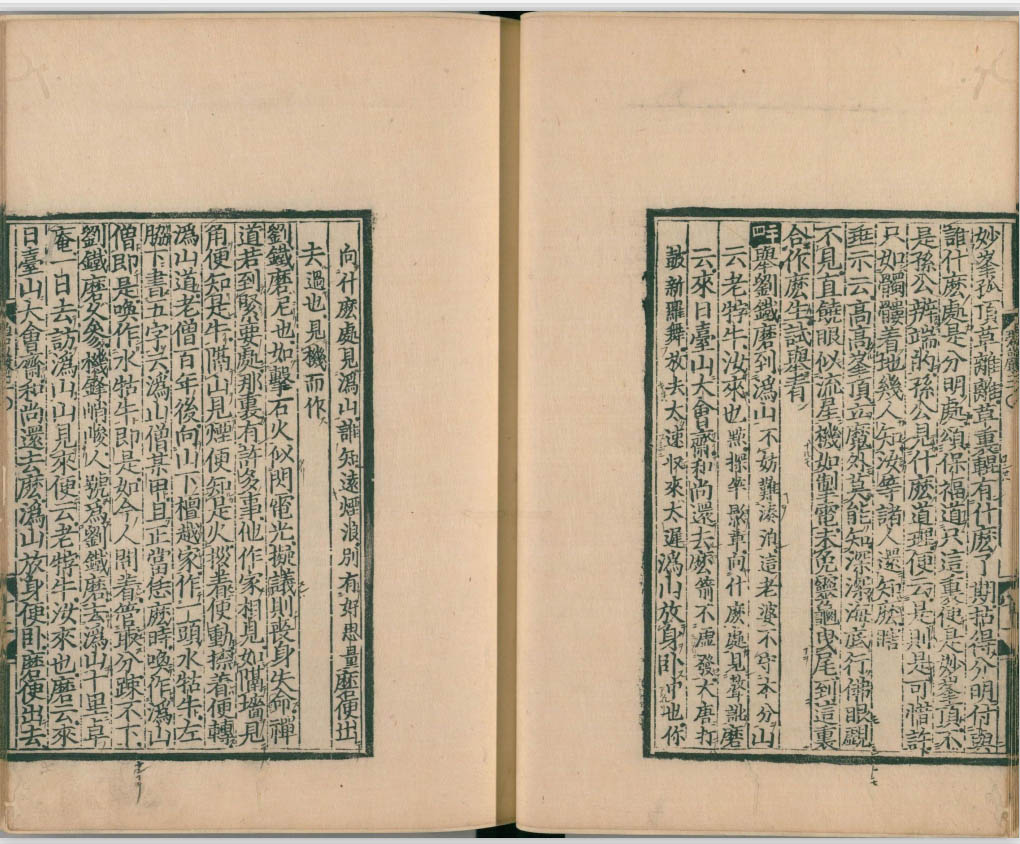 妙峯孤頂草離離草裏輥有什麽了期拈得分明付與
誰什麽處是分明處頌保福道只這裏便是妙峯頂不
是孫公辨端的孫公見什麽道理便云是則是可惜許
只如髑髏着地幾人知汝等諸人還知麽瞎
垂示云高高峯頂立魔外莫能知深深海底行佛眼覷
不見直饒眼似流星機如掣電未免靈龜曳尾到這裏
合作麽生試舉看
二十四 舉劉鐵磨到溈山不妨難湊泊這老婆不守本分山
云老牸牛汝來也點探竿影草向什麽處見聱訛磨
云來日臺山大會齋和尚還去麽箭不虛發大唐打
皷新羅舞放去太速收來太遲溈山放身臥中也你
向什麽處見溈山誰知遠煙浪別有好思量磨便出
去過也見機而作
劉鐵磨尼也如擊石火似閃電光擬議則喪身失命禪
道若到緊要處那裏有許多事他作家相見如隔墻見
角便知是牛隔山見煙便知是火拶着便動捺着便轉
溈山道老僧百年後向山下檀越家作一頭水牯牛左
脇下書五字云溈山僧某甲且正當恁麽時喚作溈山
僧即是喚作水牯牛即是如今人問着管取分疎不下
劉鐵磨久參機鋒峭峻人號爲劉鐵磨去溈山十里卓
庵一日去訪溈山山見來便云老牸牛汝來也磨云來
日臺山大會齋和尚還去麽溈山放身便臥磨便出去